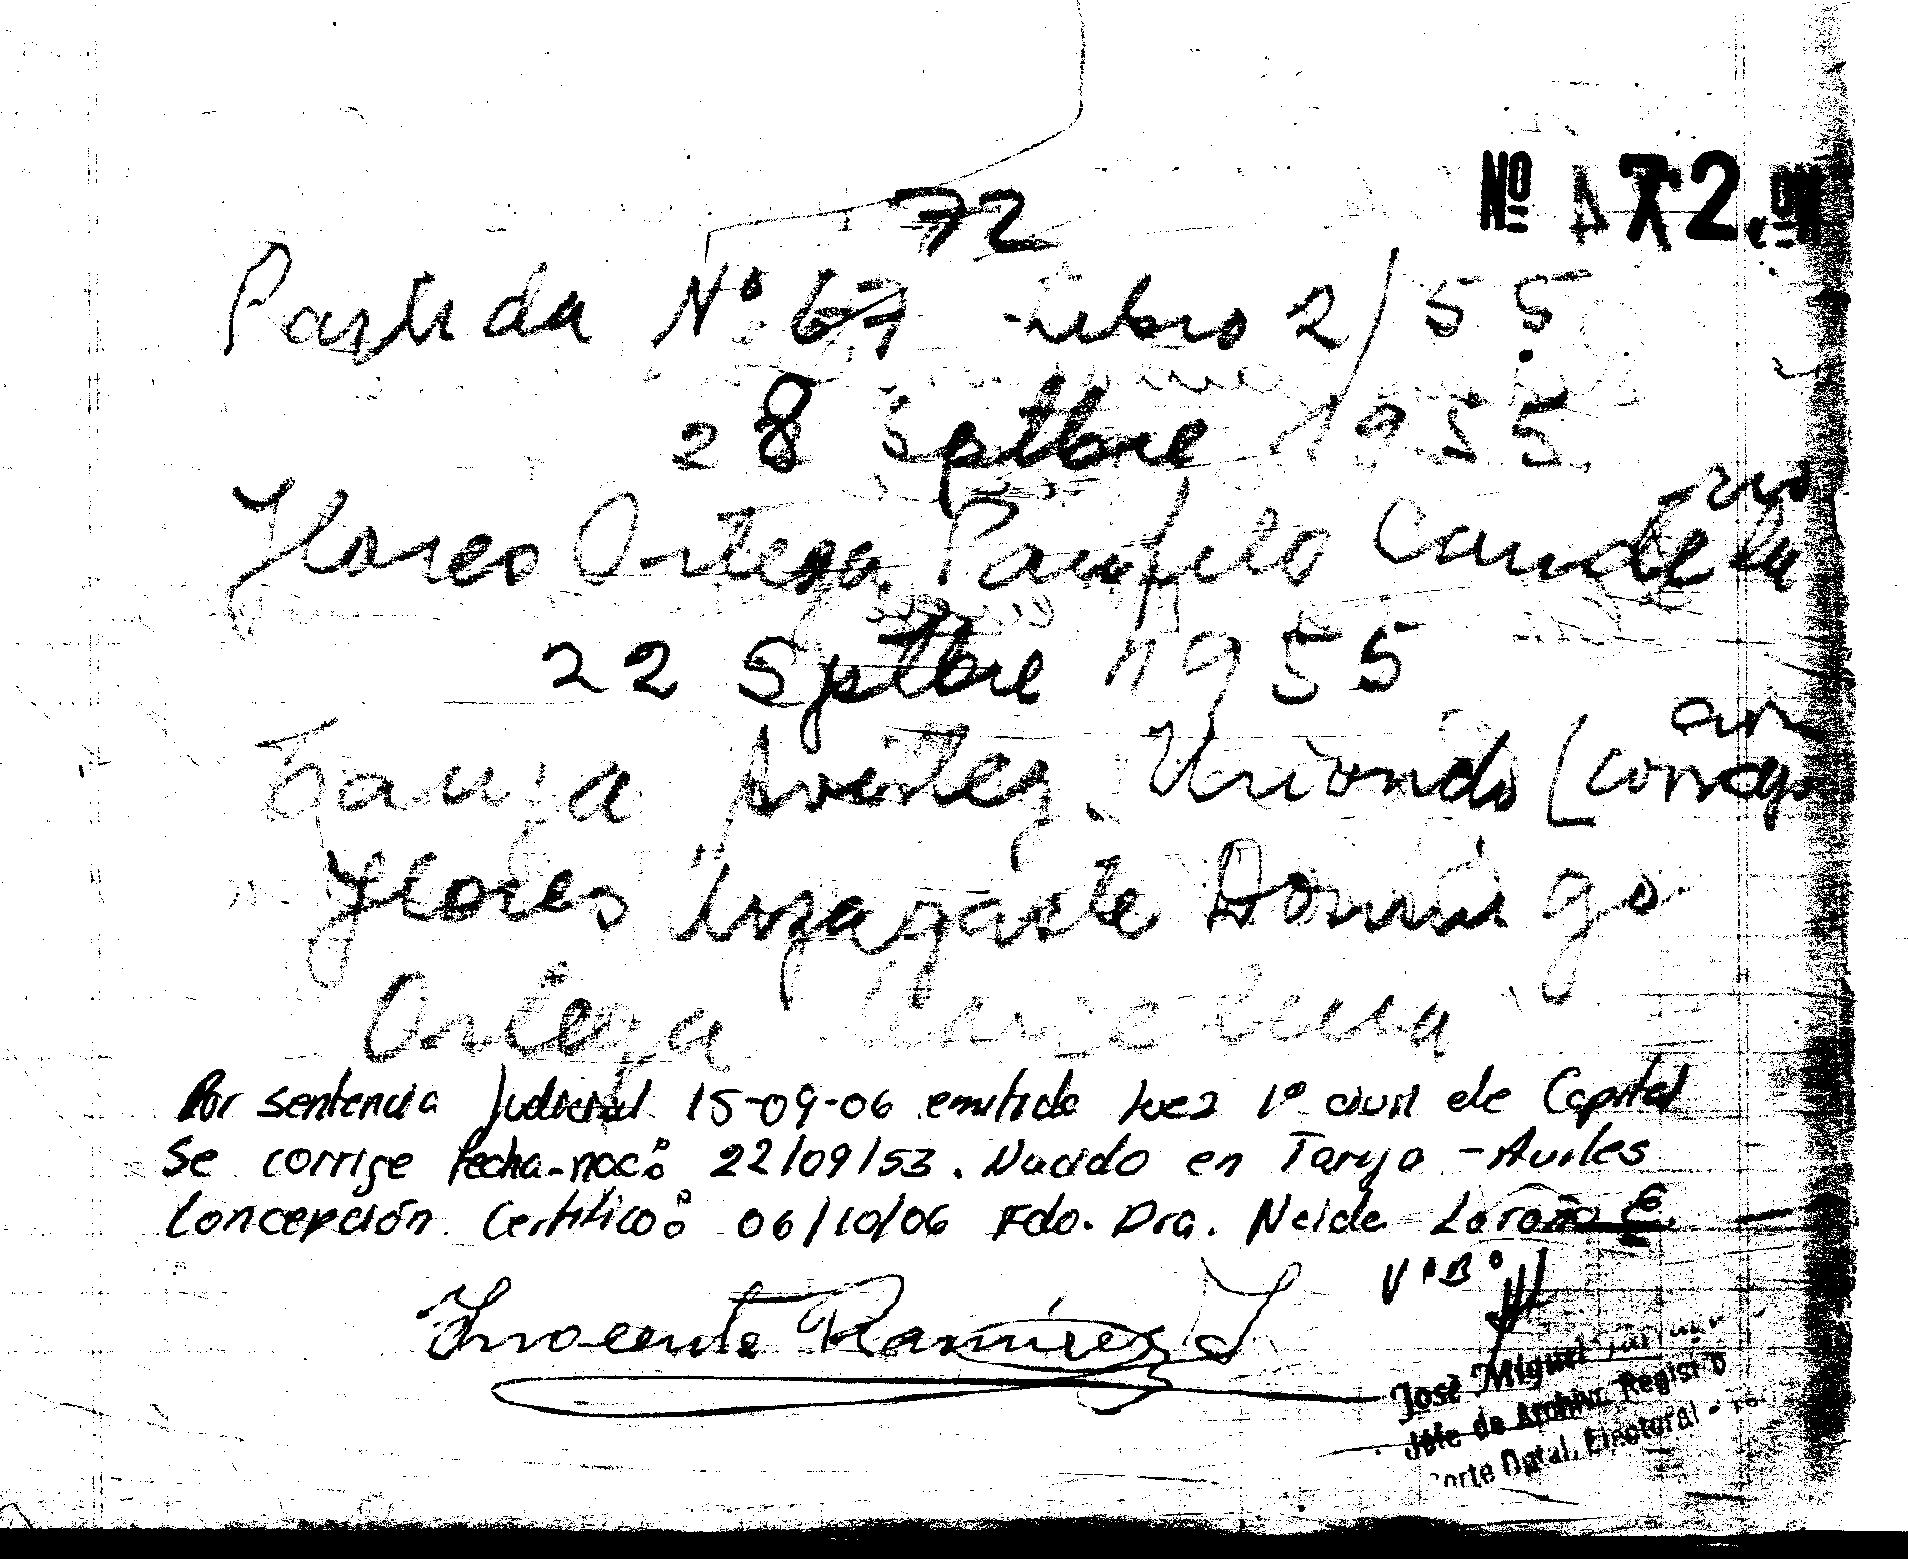 Nº 72.
72
Partida Nº 67 Libro 2/55
28 Sptbre 1955
Flores Ortega Panfilo Candela
rio
22 Sptbre 1955
Tarija Aviléz Uriondo (Concep
ción
Flores Uzagaste Domingo
Ortega
Por sentencia Judicial 15-09-06 emitida Juez 1º civil de Capital
Se corrige fecha-nac: 22/09/53. Nacido en Tarija - Aviles
Concepción. Certifico: 06/10/06 Fdo. Dra. Neide Loraño E.
Inocente Ramírez S
VºBº
José Miguel
Jefe de Archivo Registro
Corte Dptal. Electoral -